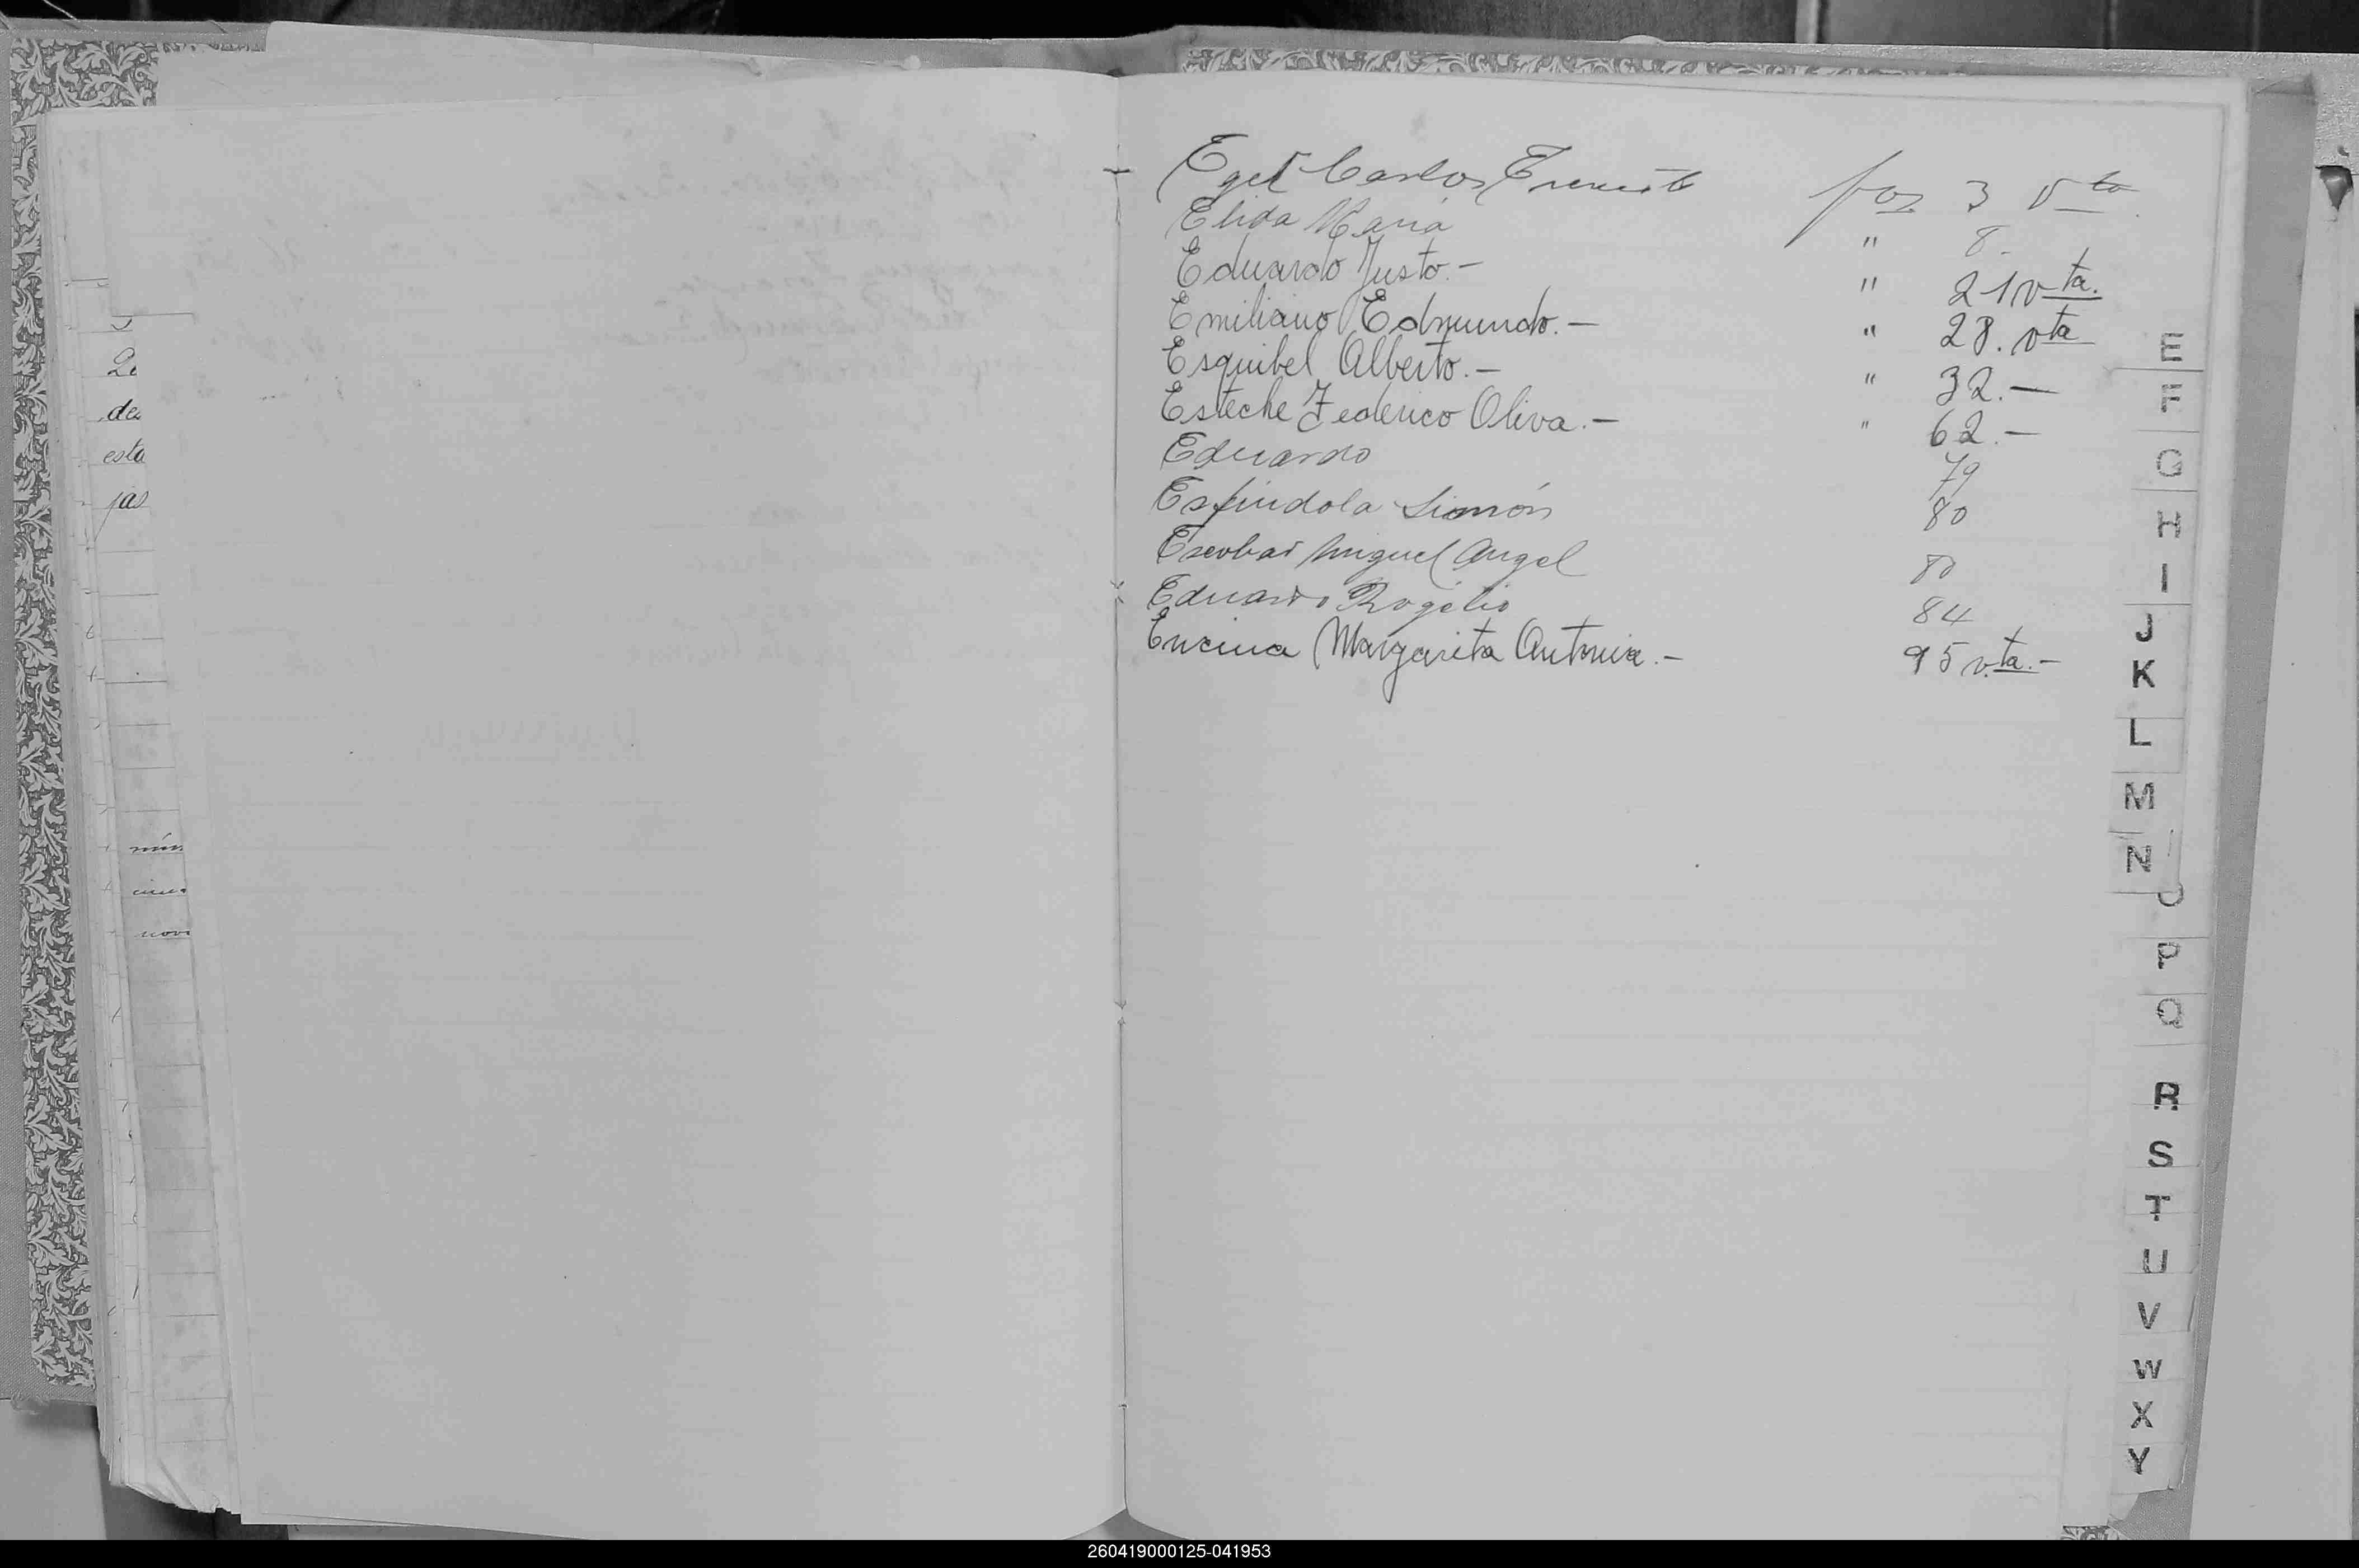 Egel Carlos Ernesto fos 3 vta
Elida María " 8.
Eduardo Justo.- " 21 vta.
Emiliano Edmundo.- " 28. vta
Esquibel Alberto.- " 32.-
Esteche Federico Oliva.- " 62.-
Eduardo 79
Espíndola Simón 80
Escobar Miguel Angel 80
Eduardo Rogelio 84
Encina Margarita Antonia.- 95 vta.-
esta
E
F
G
H
I
J
K
L
M
N
O
P
Q
R
S
T
U
V
W
X
Y
260419000125-041953